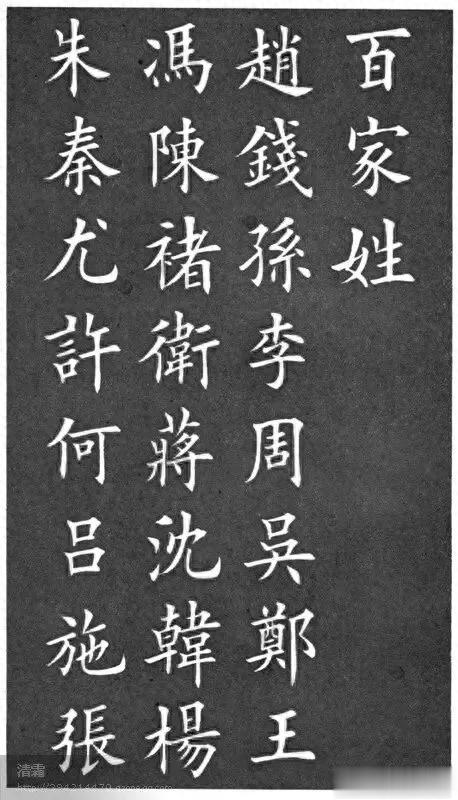 百家姓
趙錢孫李周吳鄭王
馮陳褚衛蔣沈韓楊
朱秦尤許何呂施張
清霜